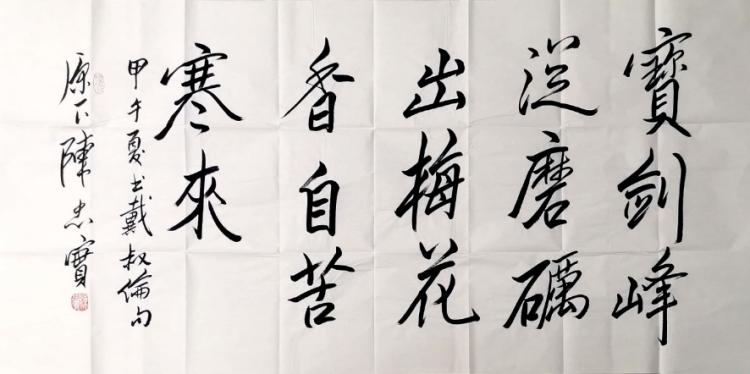 寶劍峰
從磨礪
出梅花
香自苦
寒來
甲午夏書戴叔倫句
原下陳忠實